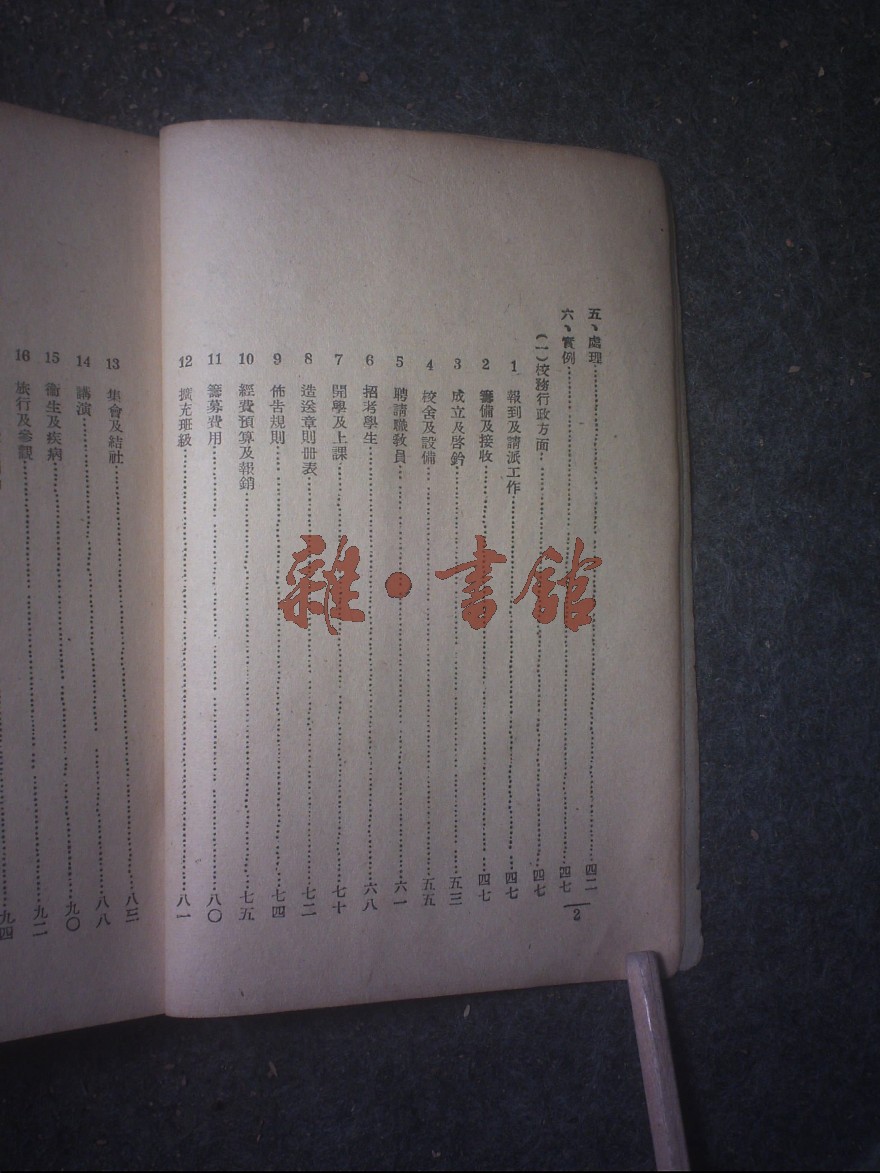 五、處理……四二
六、實例……四七
(一)校務行政方面……四七
1 報到及請派工作……四七
2 籌備及接收……四七
3 成立及啓鈐……五三
4 校舍及設備……五五
5 聘請職教員……六一
6 招考學生……六八
7 開學及上課……七十
8 造送章則冊表……七二
9 佈告規則……七四
10 經費預算及報銷……七五
11 籌募費用……八〇
12 擴充班級……八一
2
13 集會及結社……八三
14 講演……八八
15 衞生及疾病……九〇
16 旅行及參觀……九二
九四
雜·書館